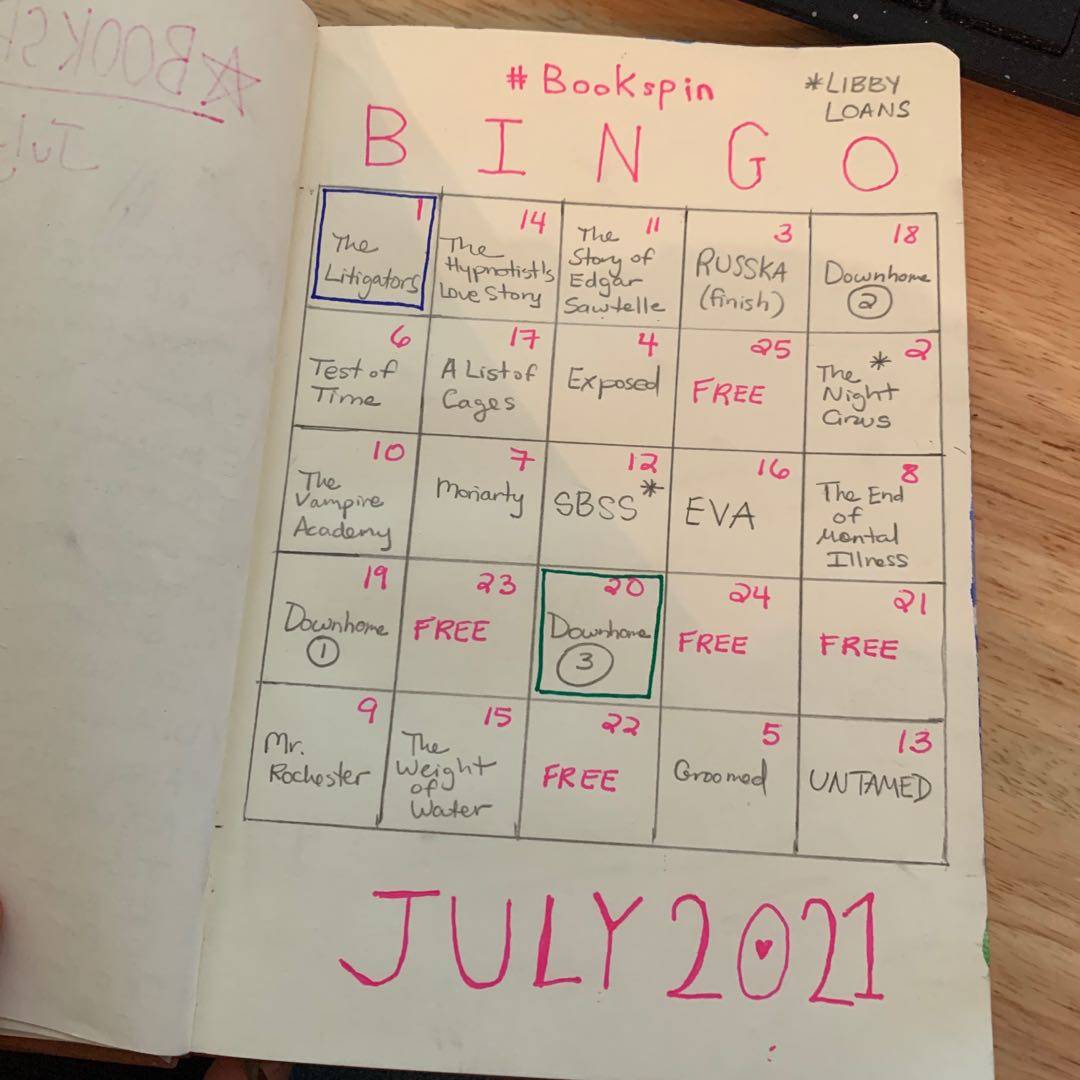 #Bookspin
*LIBBY
LOANS
B I N G O
1
The
Litigators
14
The
Hypnotist's
Love Story
11
The
Story of
Edgar
Sawtelle
3
RUSSKA
(finish)
18
Downhome
2
6
Test of
Time
17
A List of
Cages
4
Exposed
25
FREE
2
The *
Night
Circus
10
The
Vampire
Academy
7
Moriarty
12
SBSS*
16
EVA
8
The End
of
Mental
Illness
19
Downhome
1
23
FREE
20
Downhome
3
24
FREE
21
FREE
9
Mr.
Rochester
15
The
Weight
of
Water
22
FREE
5
Groomed
13
UNTAMED
JULY 2021